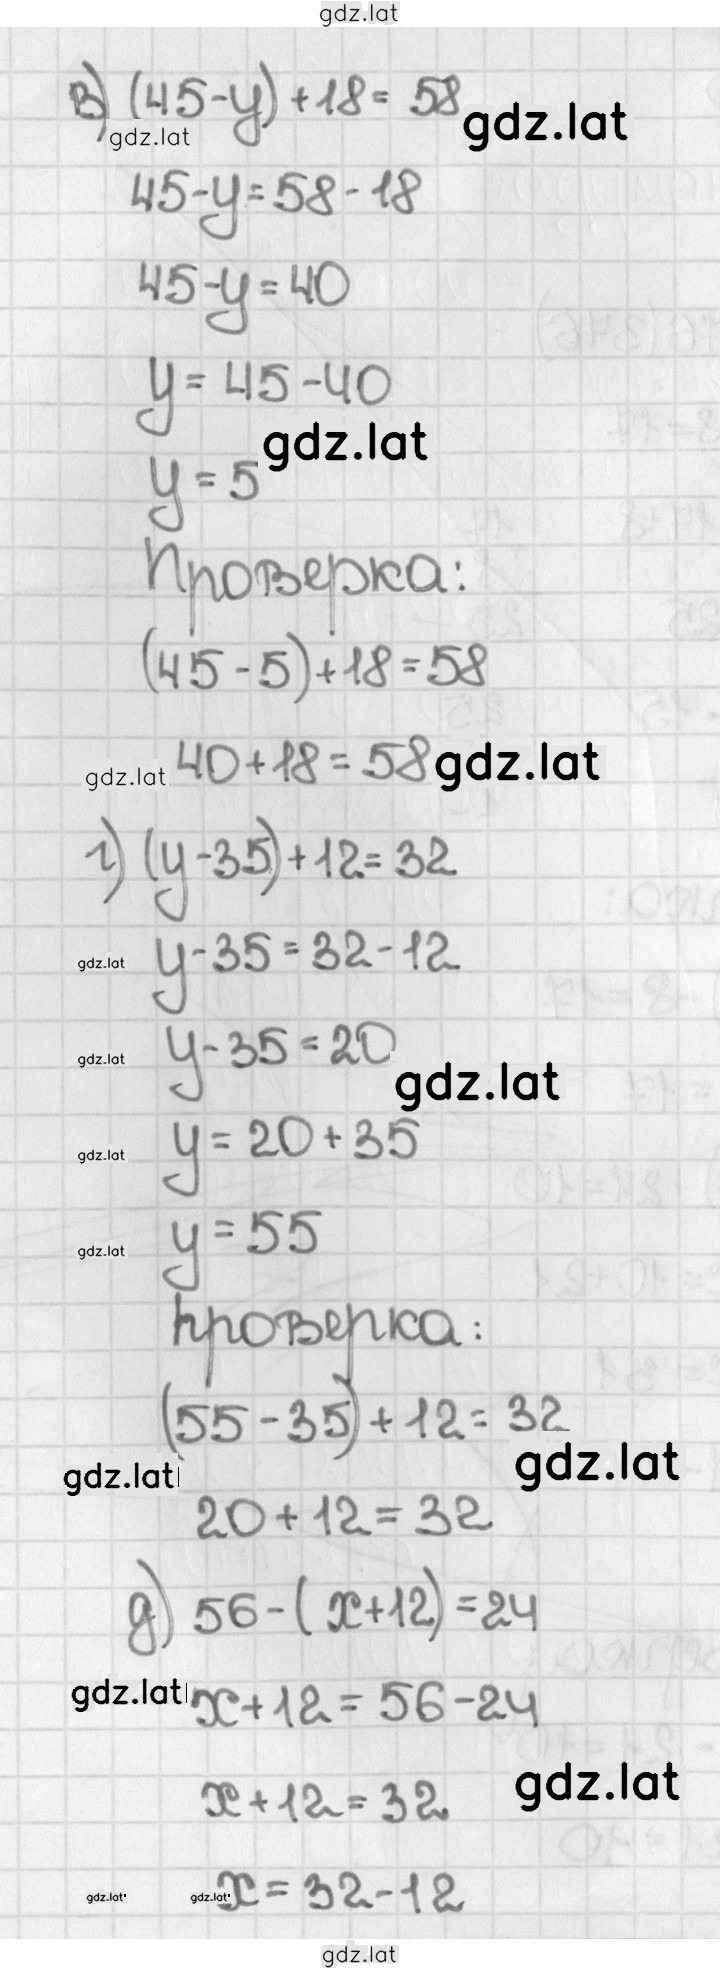 gdz.lat
в) (45-y)+18= 58 gdz.lat
gdz.lat
45-y=58-18
45-y=40
y=45-40
gdz.lat
y=5
Проверка:
(45-5)+18=58
gdz.lat 40+18=58 gdz.lat
г) (y-35)+12=32
gdz.lat y-35=32-12
gdz.lat y-35=20
gdz.lat
gdz.lat y=20+35
gdz.lat y=55
проверка:
(55-35)+12=32
gdz.lat gdz.lat
20+12=32
д) 56-(x+12)=24
gdz.lat x+12=56-24
gdz.lat
x+12=32
gdz.lat gdz.lat x=32-12
gdz.lat